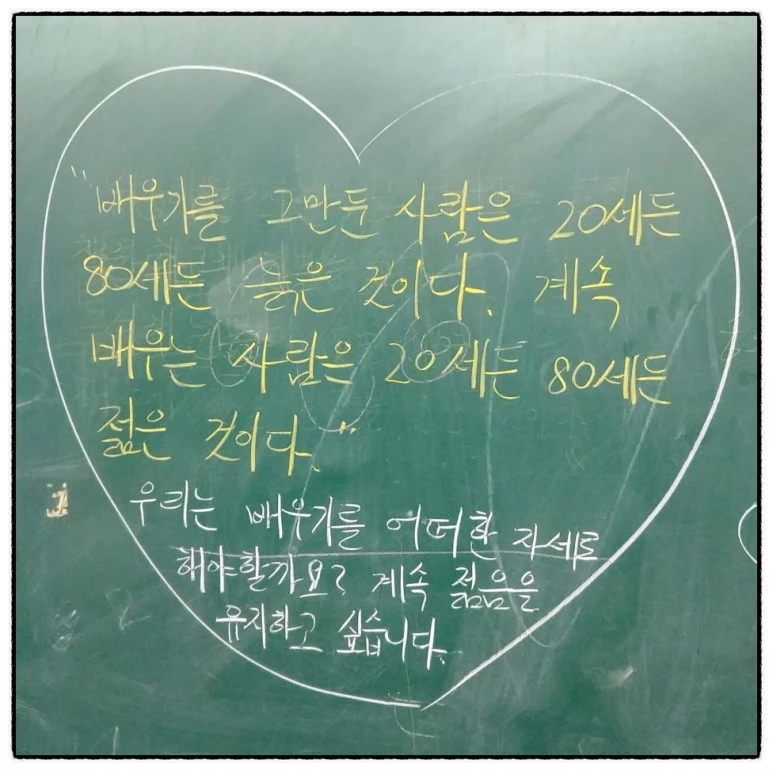 "배우기를 그만둔 사람은 20세든
80세든 늙은 것이다. 계속
배우는 사람은 20세든 80세든
젊은 것이다."
우리는 배우기를 어떠한 자세로
해야할까요? 계속 젊음을
유지하고 싶습니다.